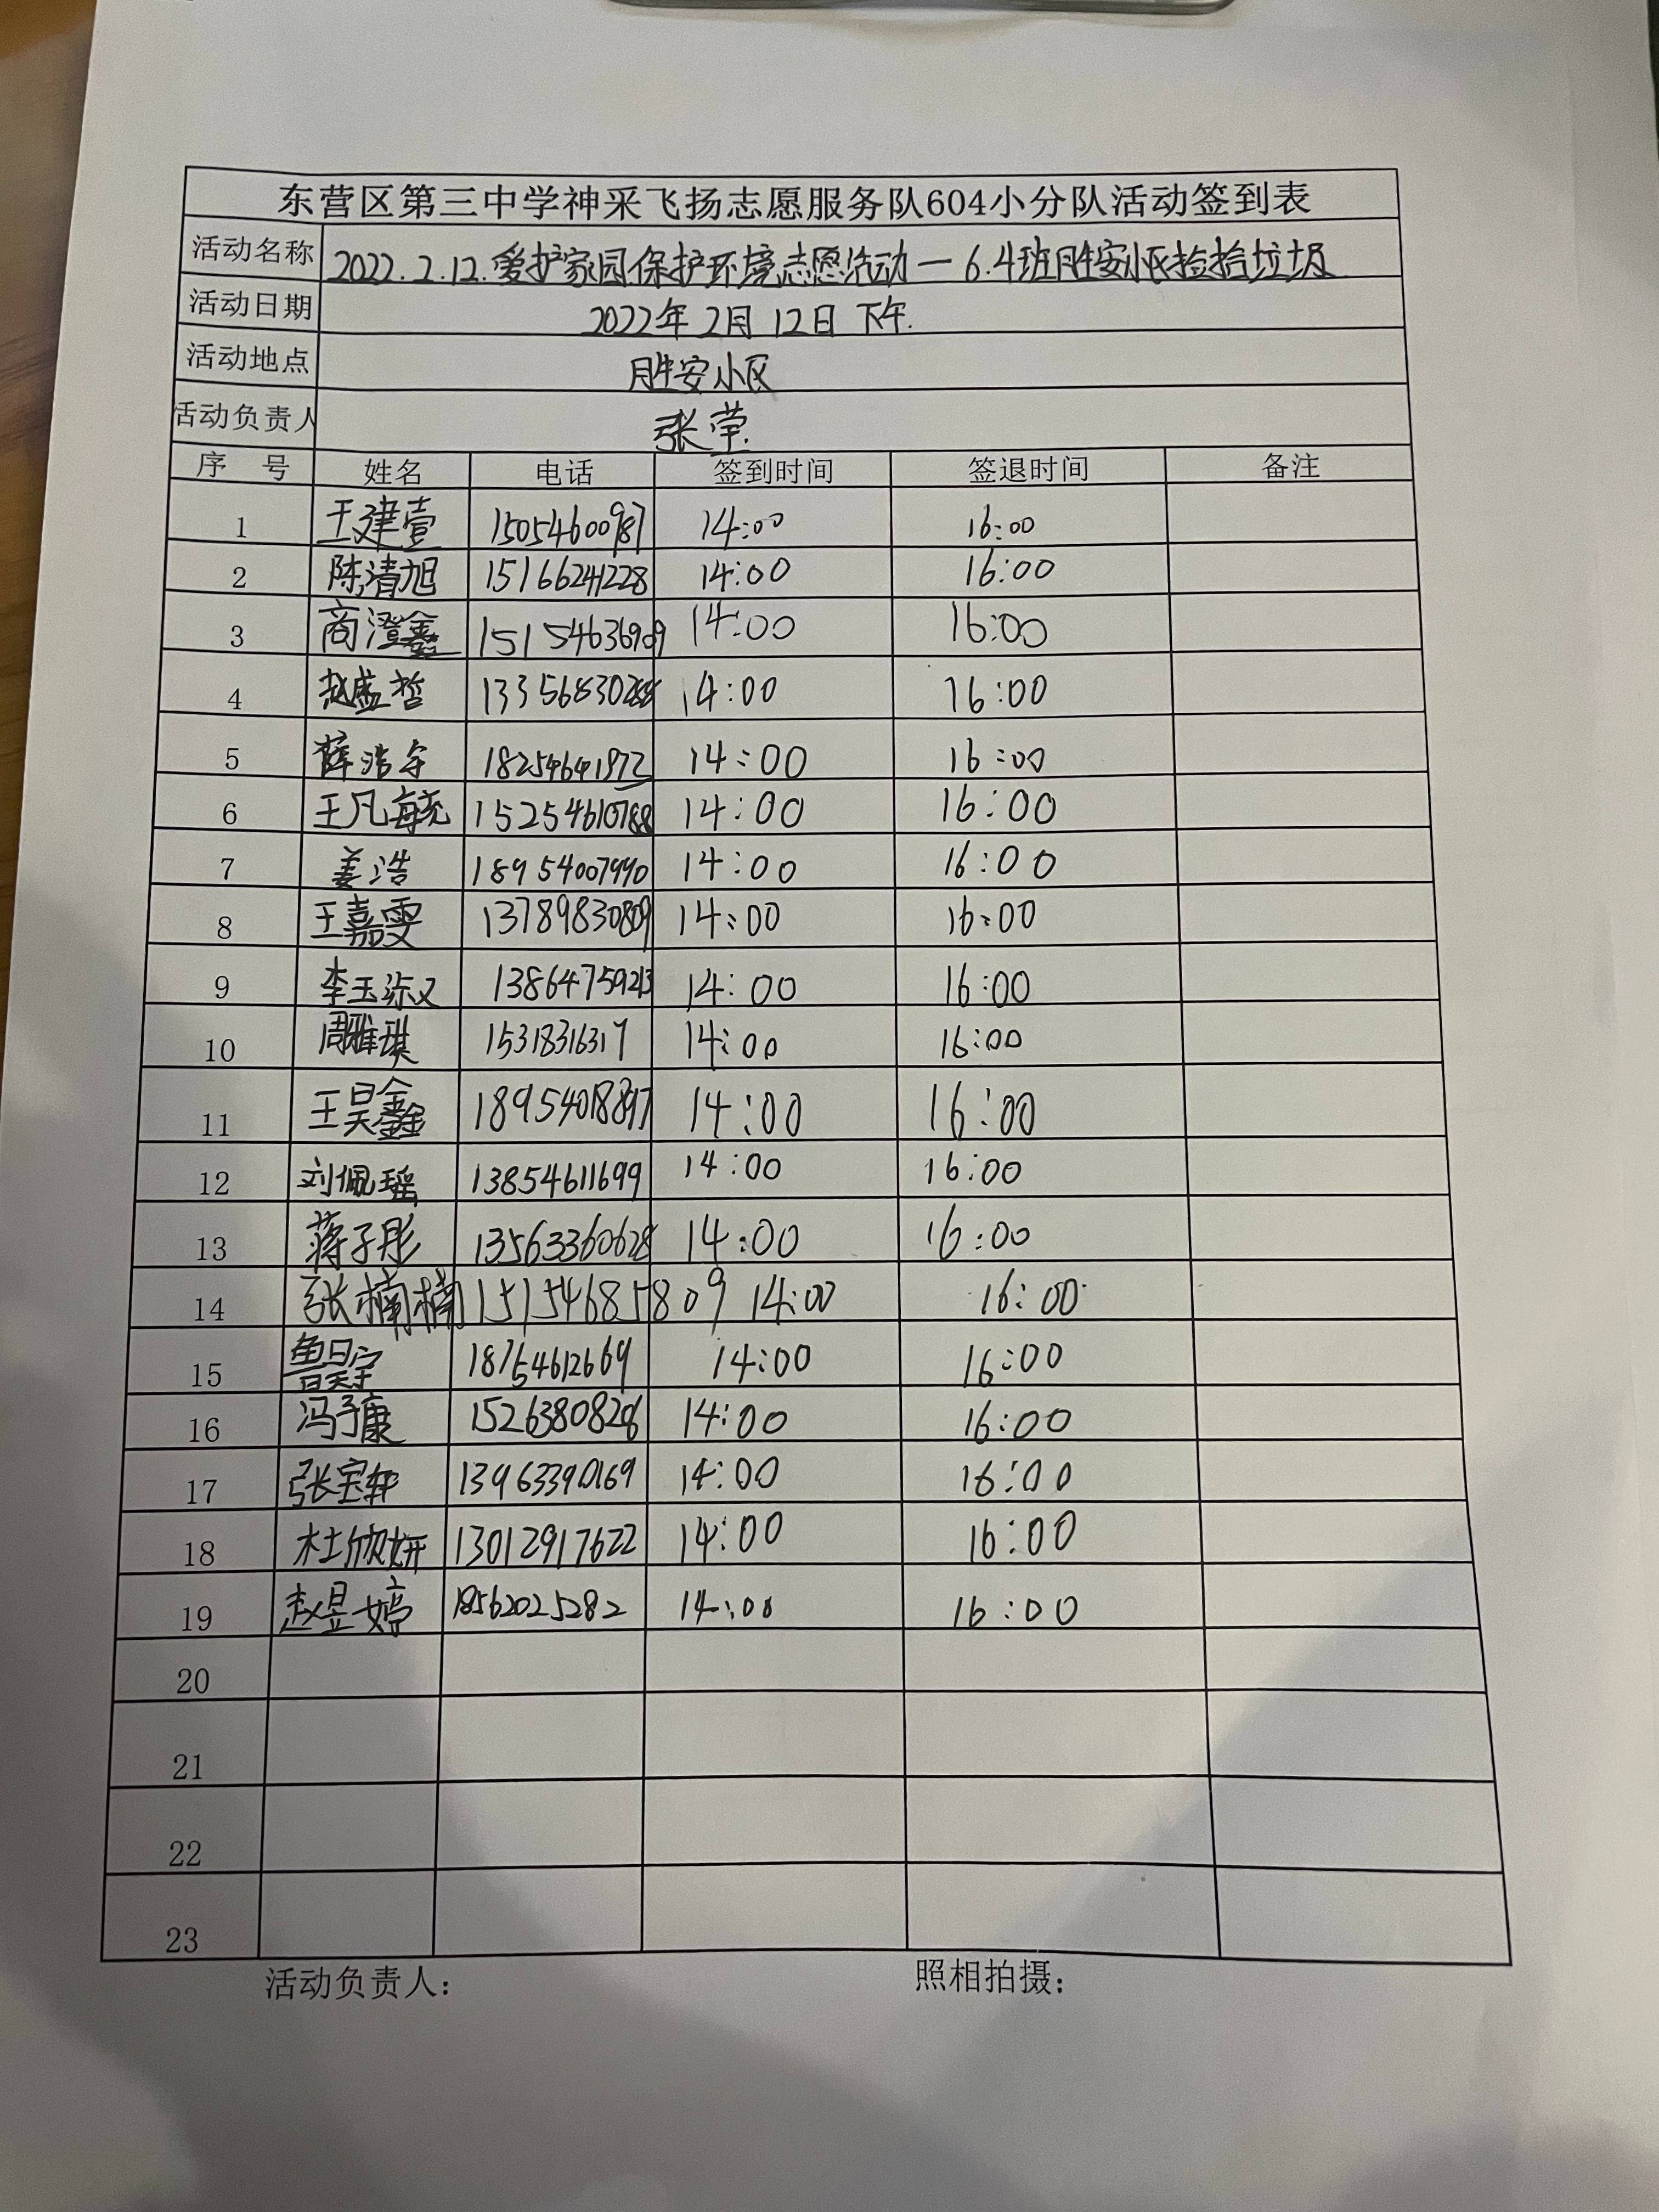 东营区第三中学神采飞扬志愿服务队604小分队活动签到表
活动名称 2022.2.12.爱护家园保护环境志愿活动—6.4班胜安小区捡拾垃圾
活动日期 2022年2月12日下午.
活动地点 胜安小区
活动负责人 张莹
序 号 姓名 电话 签到时间 签退时间 备注
1 王建壹 15054600987 14:00 16:00
2 陈清旭 15166241228 14:00 16:00
3 商澄鑫 15154636909 14:00 16:00
4 赵盛哲 14:00 16:00
5 薛浩宇 18254641972 14:00 16:00
6 王凡毓 15254610788 14:00 16:00
7 姜浩 18954007990 14:00 16:00
8 王嘉雯 13789830809 14:00 16:00
9 13864759213 14:00 16:00
10 周雅琪 15318316317 14:00 16:00
11 王昊鑫 18954018897 14:00 16:00
12 刘佩瑶 13854611699 14:00 16:00
13 蒋子彤 13563360628 14:00 16:00
14 张楠楠 15154685809 14:00 16:00
15 鲁昊宇 18754612669 14:00 16:00
16 冯子康 15263808206 14:00 16:00
17 张宝轩 13963390169 14:00 16:00
18 杜欣妍 13012917622 14:00 16:00
19 赵昱婷 18562025282 14:00 16:00
20
21
22
23
活动负责人： 照相拍摄：